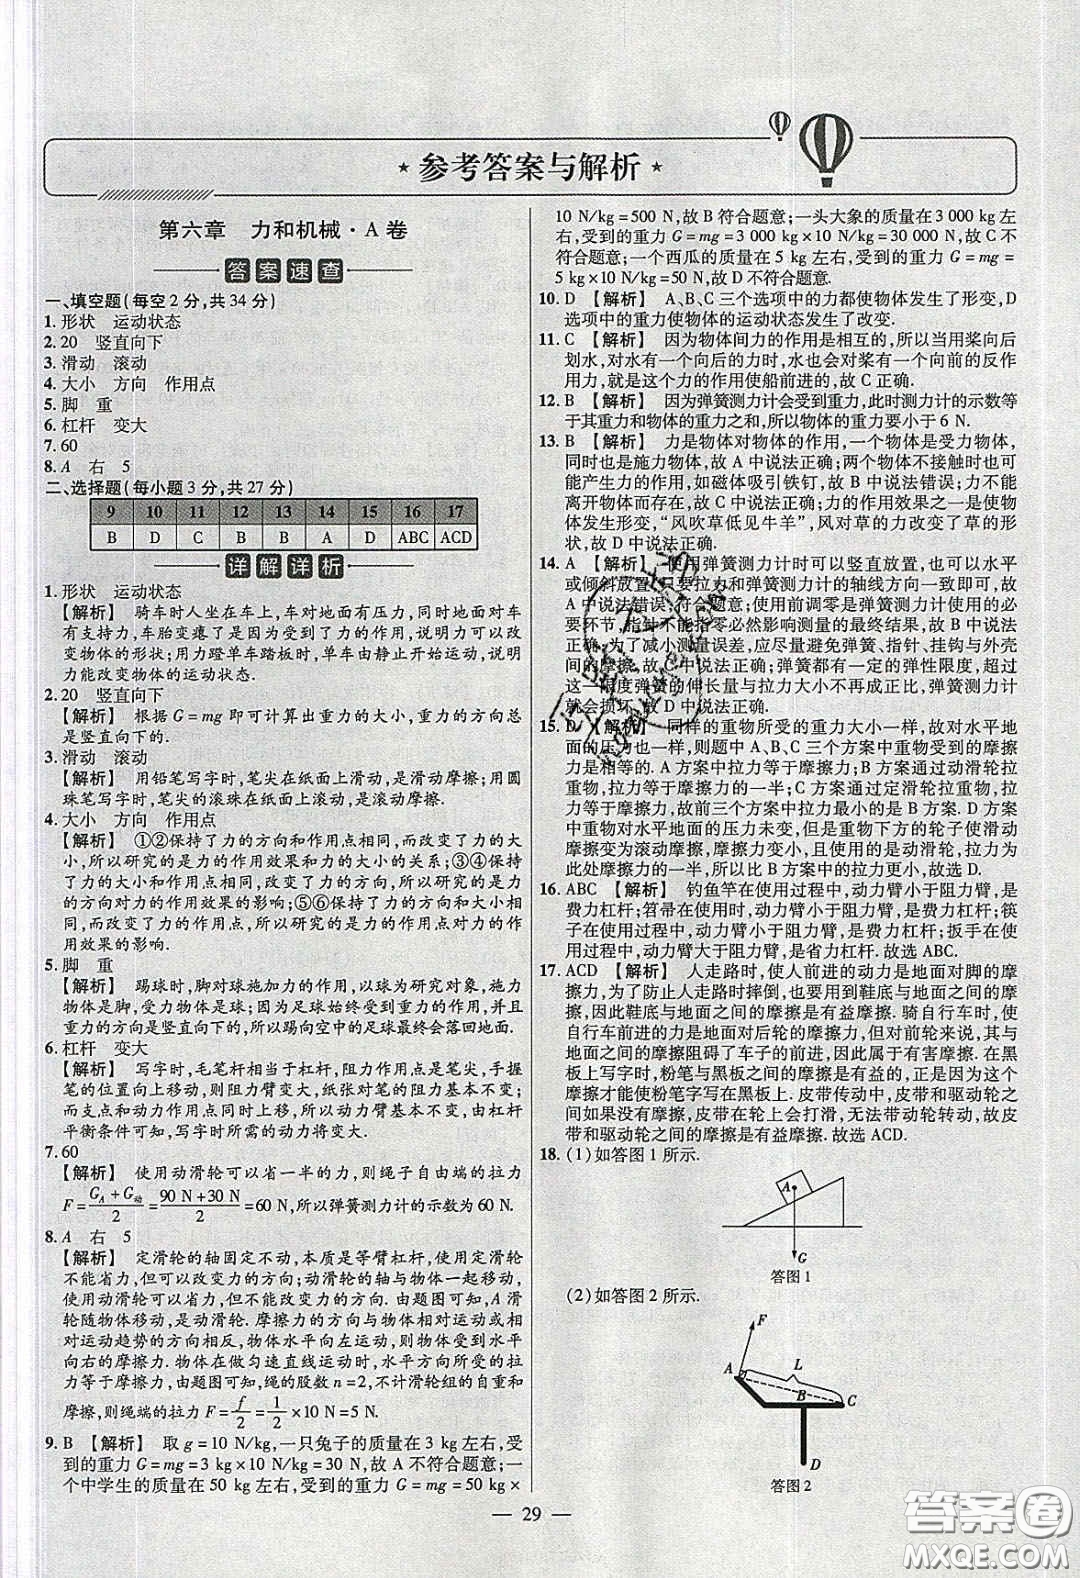 参考答案与解析
第六章 力和机械·A卷
答案速查
一、填空题(每空2分,共34分)
1.形状 运动状态
2.20 竖直向下
3.滑动 滚动
4.大小 方向 作用点
5.脚 重
6.杠杆 变大
7.60
8.A 右 5
二、选择题(每小题3分,共27分)
9 10 11 12 13 14 15 16 17
B D C B B A D ABC ACD
详解详析
1.形状 运动状态
【解析】 骑车时人坐在车上,车对地面有压力,同时地面对车
有支持力,车胎变瘪了是因为受到了力的作用,说明力可以改
变物体的形状;用力蹬单车踏板时,单车由静止开始运动,说明
力能改变物体的运动状态.
2.20 竖直向下
【解析】 根据G=mg即可计算出重力的大小,重力的方向总
是竖直向下的.
3.滑动 滚动
【解析】 用铅笔写字时,笔尖在纸面上滑动,是滑动摩擦;用圆
珠笔写字时,笔尖的滚珠在纸面上滚动,是滚动摩擦.
4.大小 方向 作用点
【解析】 ①②保持了力的方向和作用点相同,而改变了力的大
小,所以研究的是力的作用效果和力的大小的关系;③④保持
了力的大小和作用点相同,改变了力的方向,所以研究的是力
的方向对力的作用效果的影响;⑤⑥保持了力的方向和大小相
同,改变了力的作用点,所以研究的是力的作用点对力的作
用效果的影响.
5.脚 重
【解析】 踢球时,脚对球施加力的作用,以球为研究对象,施力
物体是脚,受力物体是球;因为足球始终受到重力的作用,并且
重力的方向是竖直向下的,所以踢向空中的足球最终会落回地面.
6.杠杆 变大
【解析】 写字时,毛笔杆相当于杠杆,阻力作用点是笔尖,手握
笔的位置向上移动,则阻力臂变大,纸张对笔的阻力基本不变;
而支点和动力作用点不变,即动力臂基本不变,由杠杆
平衡条件可知,写字时所需的动力将变大.
7.60
【解析】 使用动滑轮可以省一半的力,则绳子自由端的拉力
F=(G_A+G_动)/2=(90 N+30 N)/2=60 N,所以弹簧测力计的示数为60 N.
8.A 右 5
【解析】 定滑轮的轴固定不动,本质是等臂杠杆,使用定滑轮
不能省力,但可以改变力的方向;动滑轮的轴与物体一起移动,
使用动滑轮可以省力,但不能改变力的方向.由题图可知,A滑
轮随物体移动,是动滑轮.摩擦力的方向与物体相对运动或相
对运动趋势的方向相反,物体水平向左运动,则物体受到水平
向右的摩擦力.物体在做匀速直线运动时,水平方向所受的拉
力等于摩擦力,由题图可知,绳的股数n=2,不计滑轮组的自重和
摩擦,则绳端的拉力F=f/2=1/2×10 N=5 N.
9. B 【解析】 取g=10 N/kg,一只兔子的质量在3 kg左右,受
到的重力G=mg=3 kg×10 N/kg=30 N,故A不符合题意;
一个中学生的质量在50 kg左右,受到的重力G=mg=50 kg×
10 N/kg=500 N,故B符合题意;一头大象的质量在3 000 kg左
右,受到的重力G=mg=3 000 kg×10 N/kg=30 000 N,故C不
符合题意;一个西瓜的质量在5 kg左右,受到的重力G=mg=
5 kg×10 N/kg=50 N,故D不符合题意.
10. D 【解析】 A、B、C三个选项中的力都使物体发生了形变,D
选项中的重力使物体的运动状态发生了改变.
11. C 【解析】 因为物体间力的作用是相互的,所以当用桨向后
划水,对水施加一个向后的力时,水也会对桨有一个向前的反作
用力,就是这个力的作用使船前进的,故C正确.
12. B 【解析】 因为弹簧测力计会受到重力,此时测力计的示数等
于其重力和物体的重力之和,所以物体的重力要小于6 N.
13. B 【解析】 力是物体对物体的作用,一个物体是受力物体,
同时也是施力物体,故A中说法正确;两个物体不接触也可
能产生力的作用,如磁体吸引铁钉,故B中说法错误;力不能
离开物体而存在,故C中说法正确;力的作用效果之一是使
物体发生形变,“风吹草低见牛羊”,风对草的力改变了草的形
状,故D中说法正确.
14. A 【解析】 使用弹簧测力计时可以竖直放置,也可以水平或
倾斜放置,只要拉力和弹簧测力计的轴线方向一致即可,故
A中说法错误,符合题意;使用前调零是弹簧测力计使用的必
要环节,指针不能指零必然影响测量的最终结果,故B中说法
正确;为了减小测量误差,应尽量避免弹簧、指针、挂钩与外壳
间的摩擦,故C中说法正确;弹簧都有一定的弹性限度,超过
这一限度弹簧的伸长量与拉力大小不再成正比,弹簧测力计
就会损坏,故D中说法正确.
15. D 【解析】 同样的重物所受的重力大小一样,故对水平地
面的压力也一样,则题中A、B、C三个方案中重物受到的摩擦
力是相等的.A方案中拉力等于摩擦力;B方案通过动滑轮拉
重物,拉力等于摩擦力的一半;C方案通过定滑轮拉重物,拉
力等于摩擦力,故前三个方案中拉力最小的是B方案.D方案
中重物对水平地面的压力未变,但是重物下方的轮子使滑动
摩擦变为滚动摩擦,摩擦力变小,且通过动滑轮后,拉力为
此处摩擦力的一半,所以比B方案中拉力还小.故选D.
16. ABC 【解析】 钓鱼竿在使用过程中,动力臂小于阻力臂,是
费力杠杆;笤帚在使用时,动力臂小于阻力臂,是费力杠杆;筷
子在使用过程中,动力臂小于阻力臂,是费力杠杆;扳手在使
用过程中,动力臂大于阻力臂,是省力杠杆.故选ABC.
17. ACD 【解析】 人走路时,使人前进的动力是地面对脚的摩
擦力,为了防止人走路时摔倒,也可以利用鞋底与地面之间的摩
擦,因此鞋底与地面之间的摩擦是有益摩擦.骑自行车时,使
自行车前进的力是地面对后轮的摩擦力,但对前轮来说,其与
地面之间的摩擦阻碍了车子的前进,因此属于有害摩擦.在黑
板上写字时,粉笔与黑板之间的摩擦是有益的,正是因为这个
摩擦才能使粉笔字写在黑板上.皮带传动中,皮带和驱动轮间
如果没有摩擦,皮带在轮上会打滑,无法带动轮转动,故皮
带和驱动轮之间的摩擦是有益摩擦.故选ACD.
18. (1)如答图1所示.
A
G
答图1
(2)如答图2所示.
F
A
L
B
C
D
答图2
— 29 —
答案圈
MXQE.COM